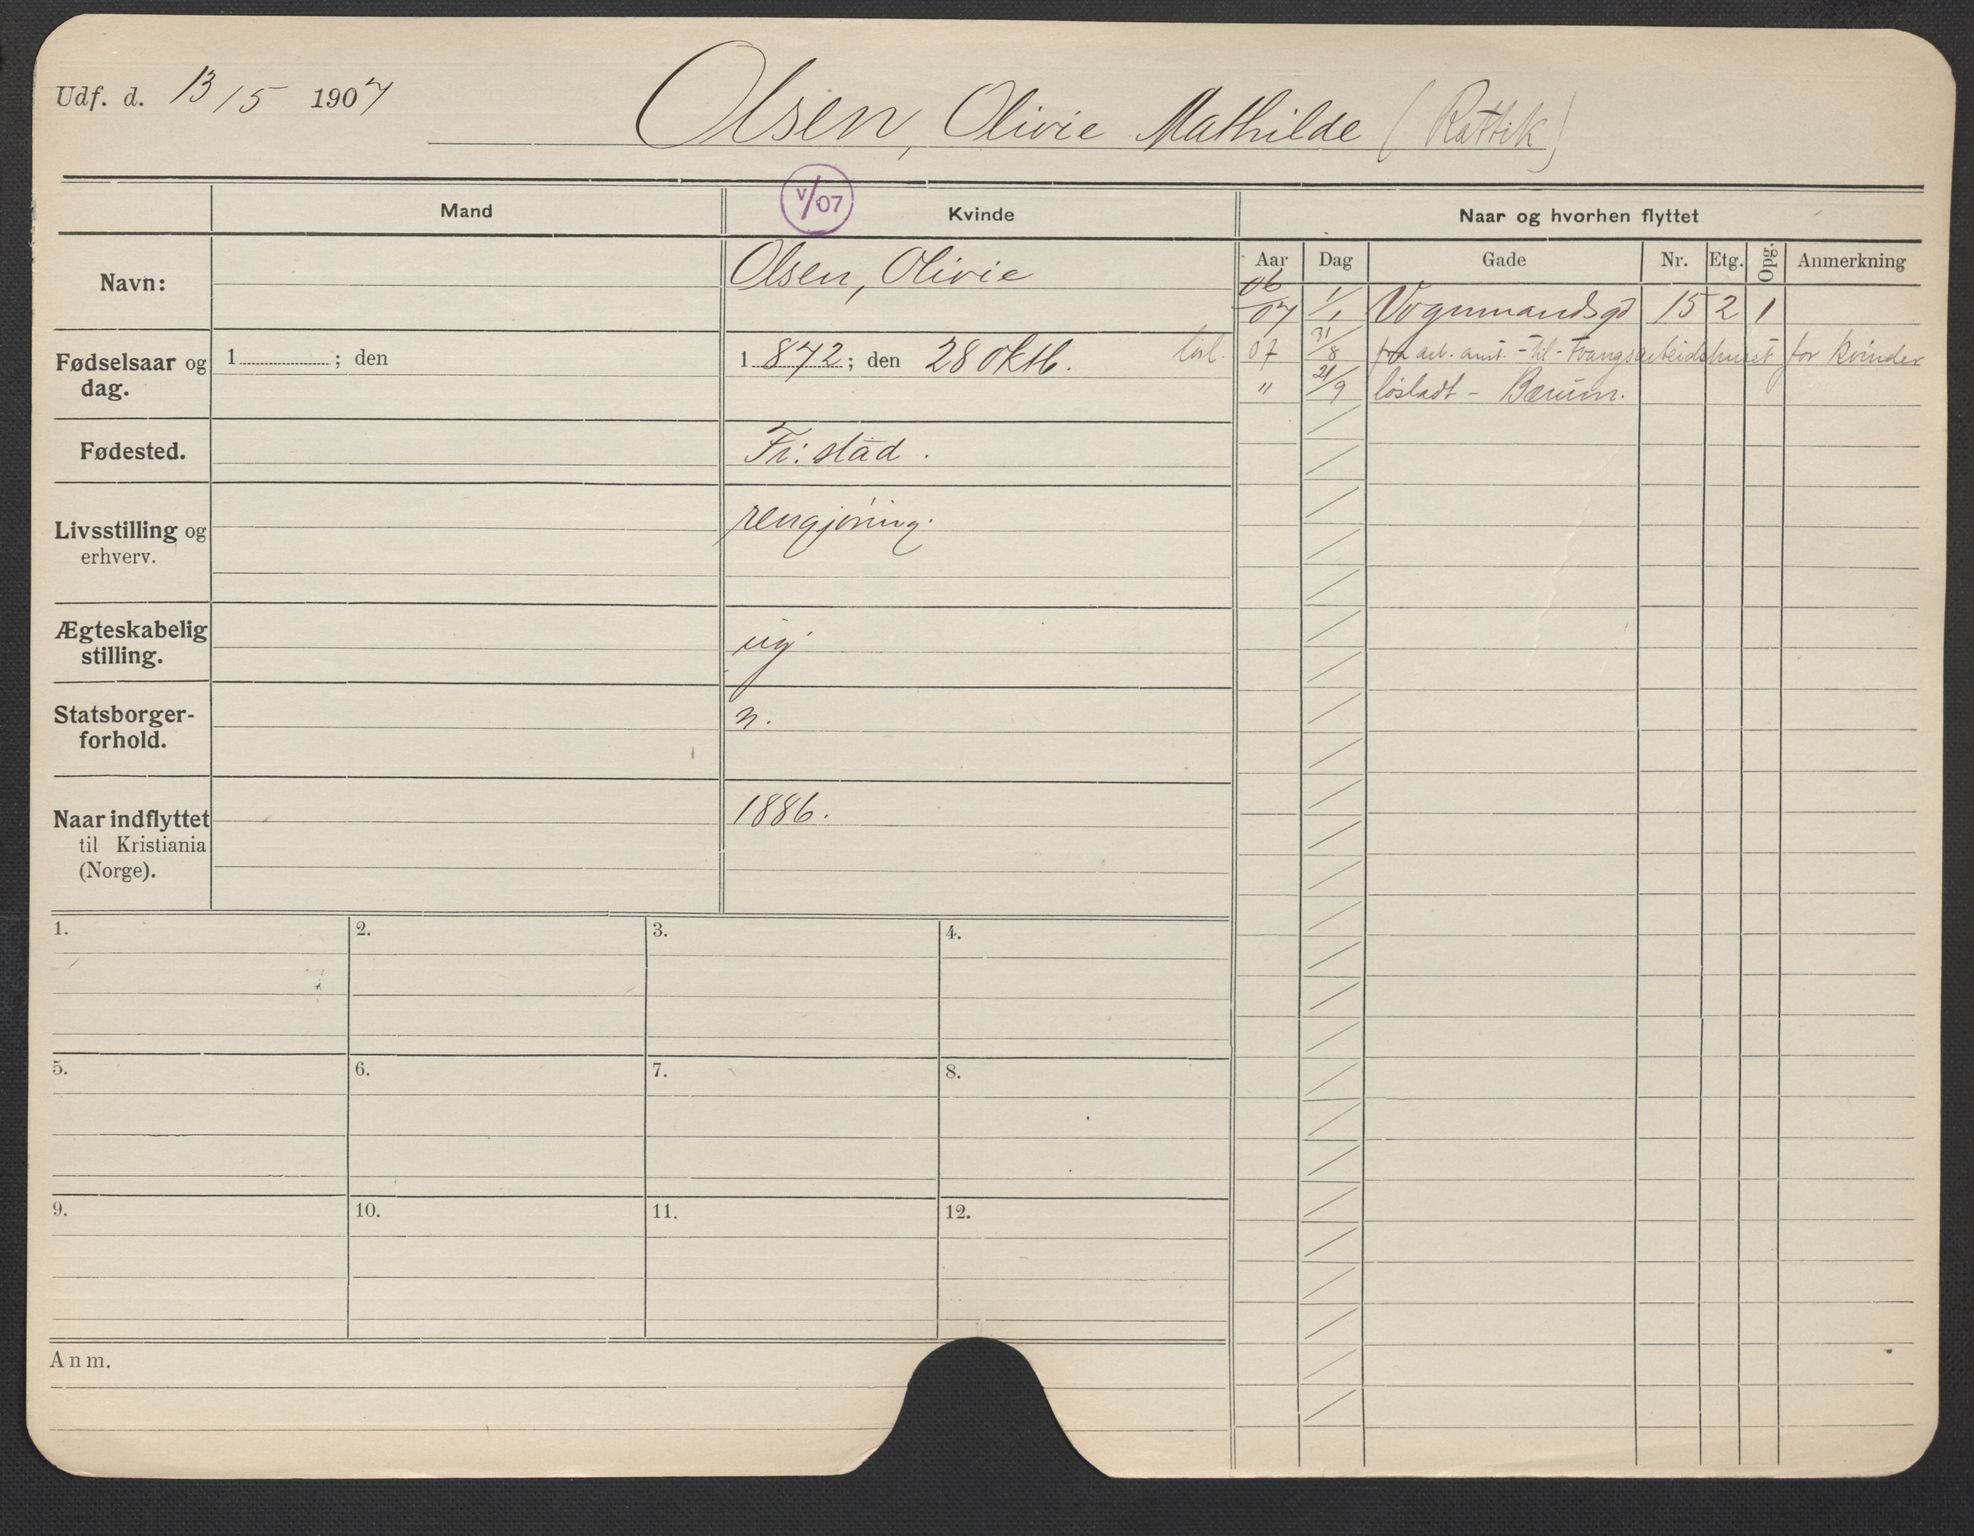 Udf. d. 13/5 1907
Olsen, Olivie Mathilde (Rattik)
Mand
V/07
Kvinde
Naar og hvorhen flyttet
Navn:
Olsen, Olivie
Aar Dag Gade Nr. Etg. Opg. Anmerkning
06/07 1/1 Vognmandsgd 15 2 1
Fødselsaar og dag.
1 ; den
1 872; den 28 oktb.
løsl.
07 31/8 fra arb. anst. - til - Tvangsarbeidshuset for kvinder
" 21/9 løsladt - Bærum.
Fødested.
Fr: stad.
Livsstilling og
erhverv.
rengjøring.
Ægteskabelig
stilling.
ug
Statsborger-
forhold.
n.
Naar indflyttet
til Kristiania
(Norge).
1886.
1. 2. 3. 4.
5. 6. 7. 8.
9. 10. 11. 12.
Anm.